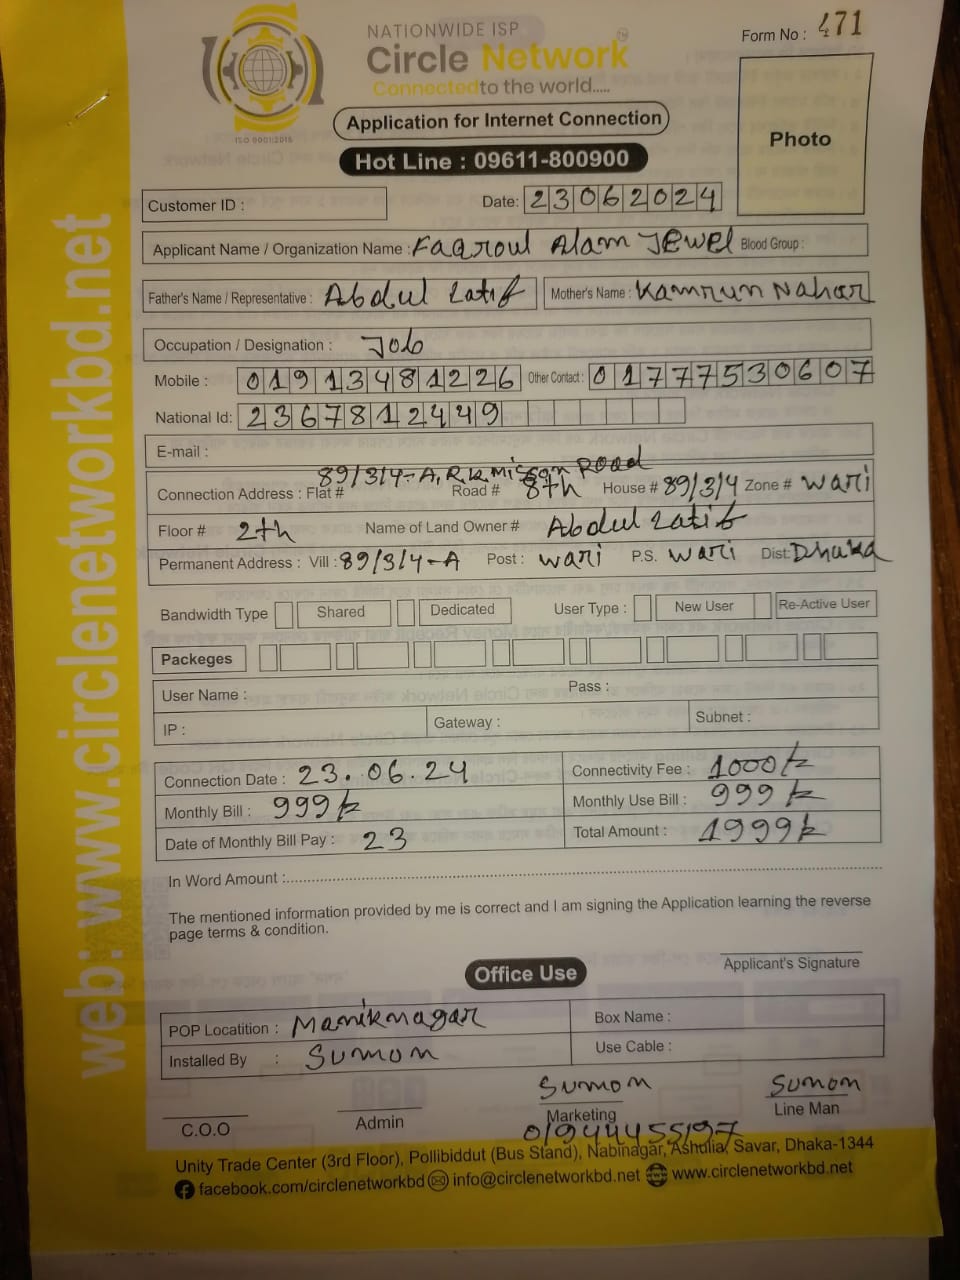 NATIONWIDE ISP
Circle Network TM
Connected to the world.....
ISO 9001:2015
Form No : 471
Application for Internet Connection
Hot Line : 09611-800900
Photo
Customer ID :
Date: 23062024
Applicant Name / Organization Name : Faqroul Alam Jewel Blood Group :
Father's Name / Representative : Abdul Latif Mother's Name : Kamrun Nahar
Occupation / Designation : Job
Mobile : 01913481226 Other Contact : 01777530607
National Id: 2367812449
E-mail :
89/3/4-A, R.K. Mission Road
Connection Address : Flat # Road # 8th House # 89/3/4 Zone # wari
Floor # 2th Name of Land Owner # Abdul Latif
Permanent Address : Vill : 89/3/4-A Post : wari P.S. wari Dist: Dhaka
Bandwidth Type Shared Dedicated User Type : New User Re-Active User
Packeges
User Name : Pass :
IP : Gateway : Subnet :
Connection Date : 23.06.24 Connectivity Fee : 1000/=
Monthly Bill : 999/= Monthly Use Bill : 999/=
Date of Monthly Bill Pay : 23 Total Amount : 1999/=
In Word Amount :
The mentioned information provided by me is correct and I am signing the Application learning the reverse
page terms & condition.
Applicant's Signature
Office Use
POP Locatition : Maniknagar Box Name :
Installed By : Sumon Use Cable :
Sumon Sumon
C.O.O Admin Marketing Line Man
01944455197
Unity Trade Center (3rd Floor), Pollibiddut (Bus Stand), Nabinagar, Ashulia, Savar, Dhaka-1344
facebook.com/circlenetworkbd info@circlenetworkbd.net www.circlenetworkbd.net
web: www.circlenetworkbd.net